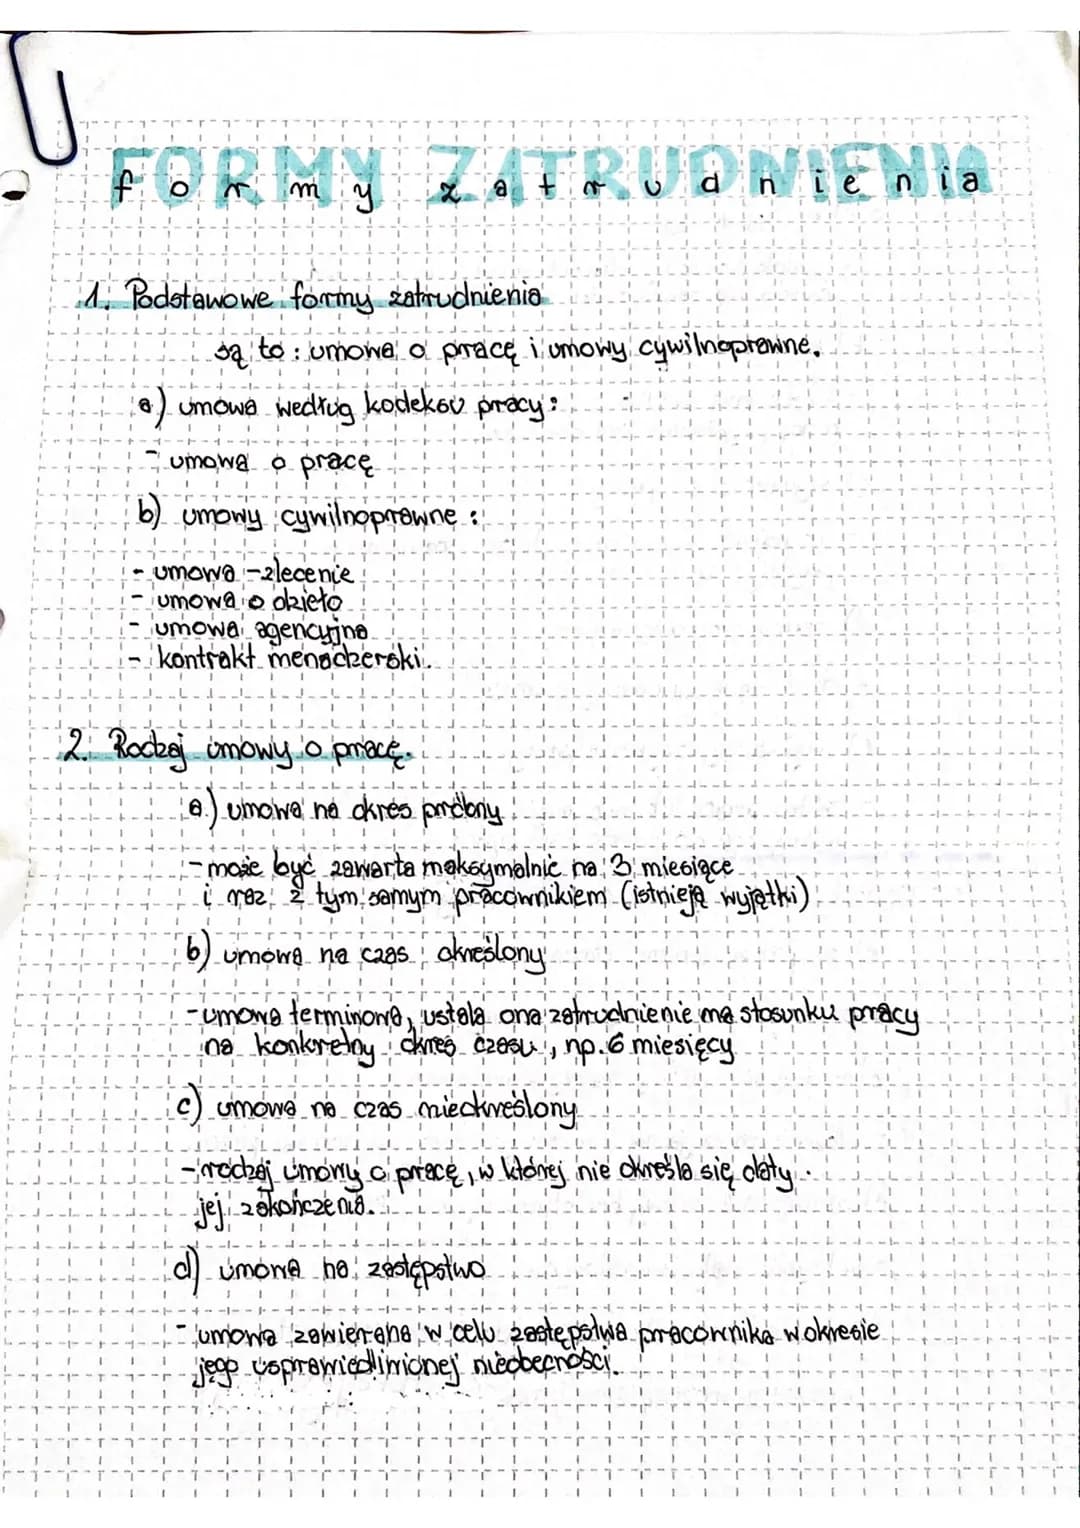 FORMY ZATRUDNIENIA
formy zatrudnienia
1. Podstawowe formy zatrudnienia
są to: umowa o pracę i umowy cywilnoprawne.
a) umowa według kodeksu pracy:
- umowa o pracę
b) umowy cywilnoprawne:
- umowa-zlecenie
- umowa o dzieło
- umowa agencyjna
- kontrakt menadżerski.
2. Rodzaj umowy o pracę.
a.) umowa na okres próbny
- może być zawarta maksymalnie na 3 miesiące
i raz z tym samym pracownikiem (istnieją wyjątki)
b) umowa na czas określony
- umowa terminowa, ustala ona zatrudnienie na stosunku pracy
na konkretny okres czasu, np. 6 miesięcy
c) umowa na czas nieokreślony
- rodzaj umowy o pracę, w której nie określa się daty
jej zakończenia.
d) umowa na zastępstwo
- umowa zawierana w celu zastępstwa pracownika w okresie
jego usprawiedliwionej nieobecności.